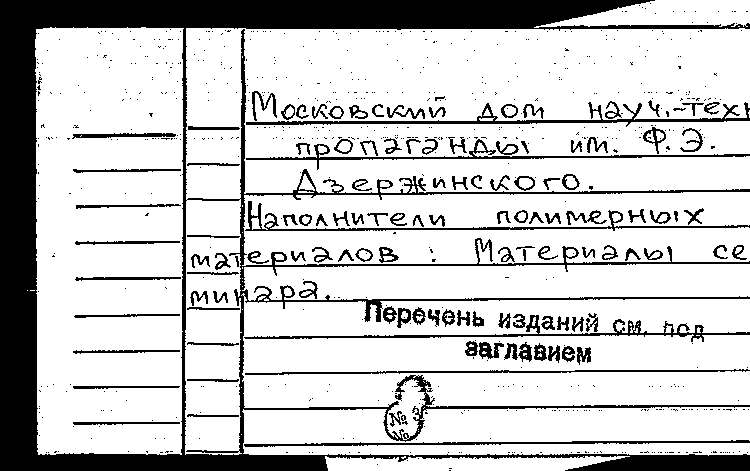 Московский дом науч.-техн
пропаганды им. Ф.Э.
Дзержинского.
Наполнители полимерных
материалов : Материалы се
минара.
Перечень изданий см. под
заглавием
№ 3
№